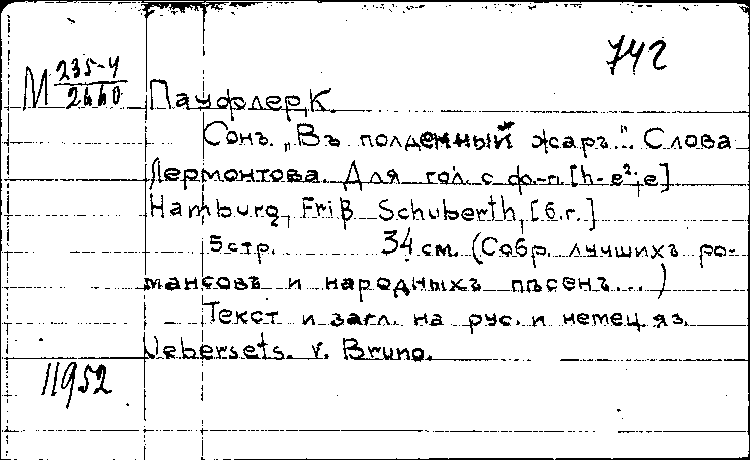 742
М 235-4
2660
Пауфлер, К.
Сонъ. „Въ полденный жаръ..". Слова
Лермонтова. Для гол. с ф.-п. [h-e²; e]
Hamburg, Friß Schuberth, [б.г.]
5 стр. 34 см. (Собр. лучшихъ ро-
мансовъ и народныхъ пѣсенъ...)
Текст и загл. на рус. и немец. яз.
Uebersets. v. Bruno.
11952